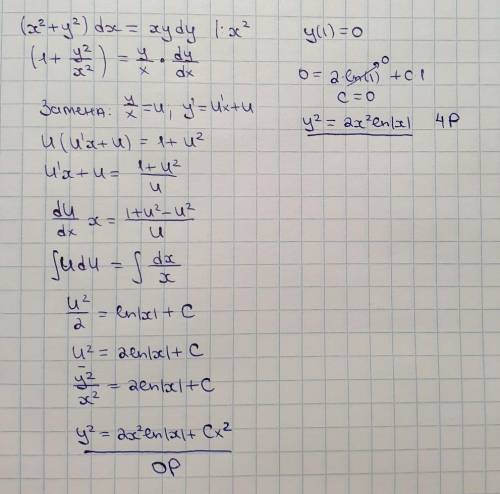 (x²+y²)dx = xydy |:x²
(1+ y²/x²) = y/x · dy/dx
Замена: y/x = u, y' = u'x+u
u(u'x+u) = 1+u²
u'x+u = (1+u²)/u
du/dx x = (1+u²-u²)/u
∫udu = ∫dx/x
u²/2 = ln|x| + C
u² = 2ln|x| + C
y²/x² = 2ln|x| + C
y² = 2x²ln|x| + Cx²
ОР
y(1)=0
0 = 2·ln(1) + C·1
0
C=0
y² = 2x²ln|x| ЧР